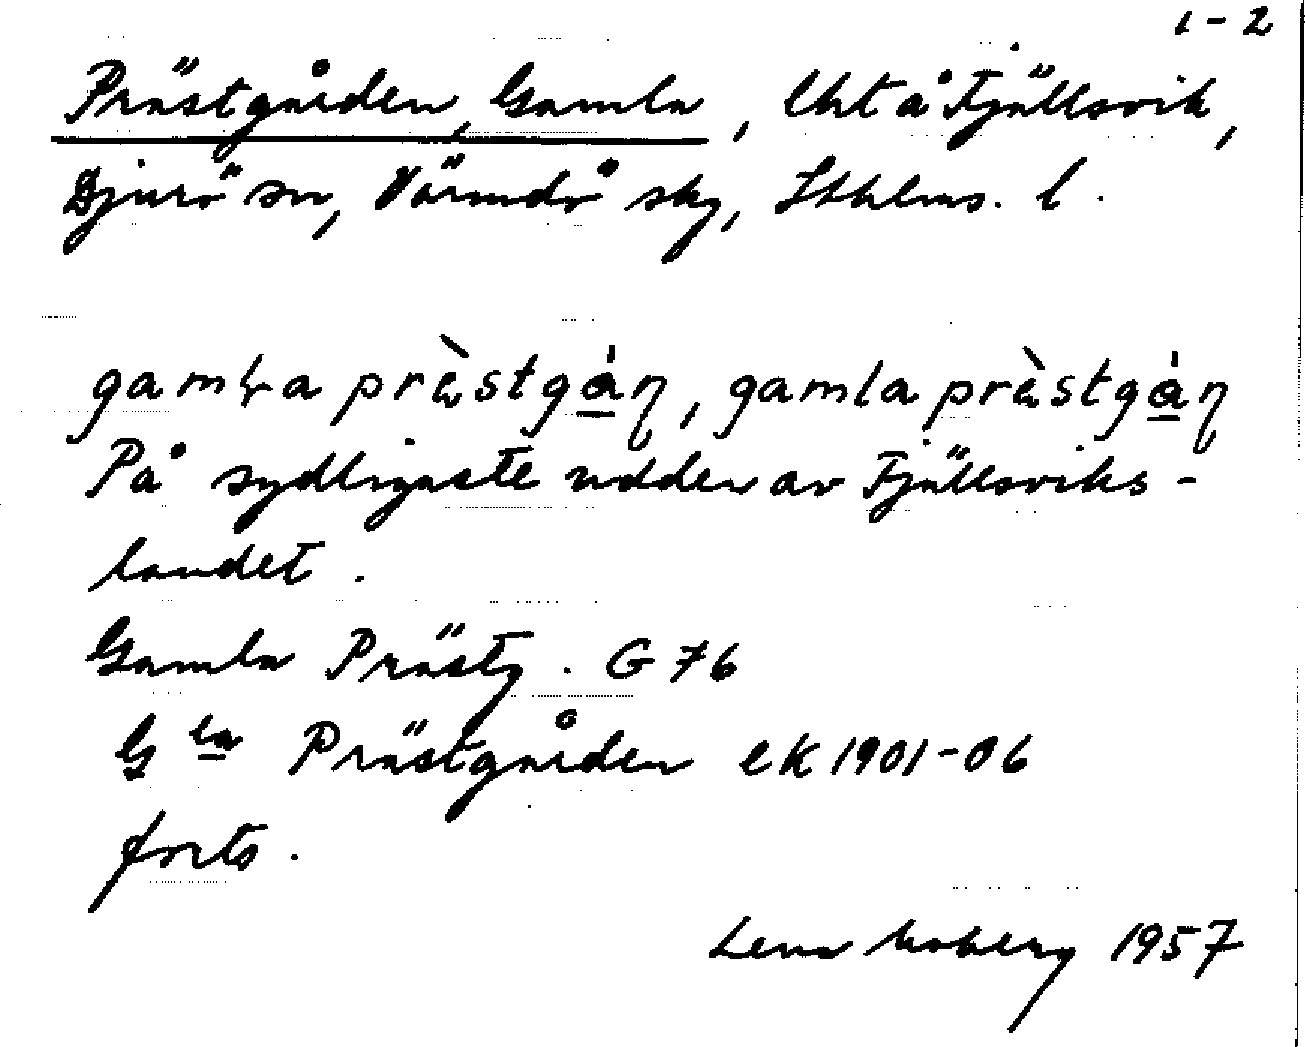 1-2
Prästgården, Gamla, Uht å Fjällsvik,
Djurö sn, Värmdö skg, Sthlms. l.
gamla prὲstgån, gamla prὲstgån
På sydligaste udden av Fjällsviks-
landet.
Gamla Prästg. G 76
G la Prästgården ek 1901-06
forts.
Lena Moberg 1957